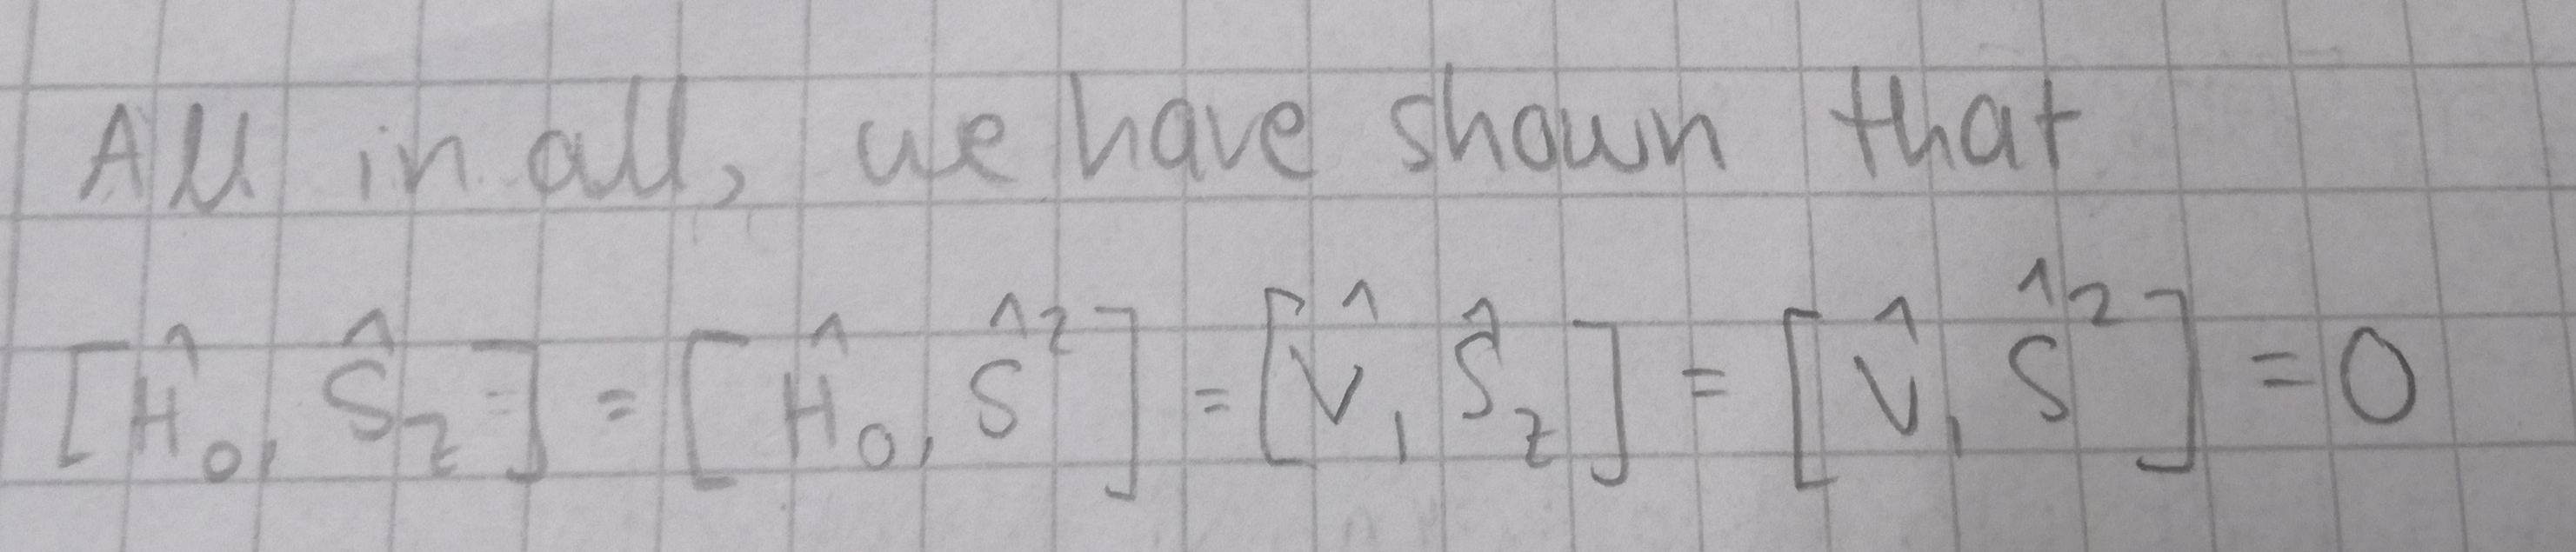 All in all, we have shown that
[Ĥ₀, Ŝ_z] = [Ĥ₀, Ŝ²] = [V̂, Ŝ_z] = [V̂, Ŝ²] = 0